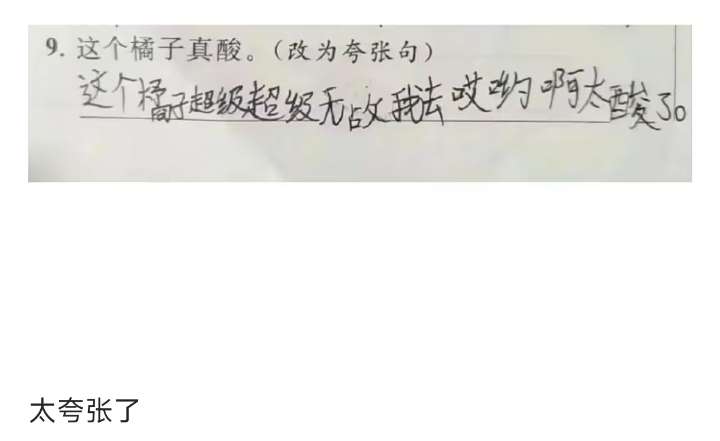 9. 这个橘子真酸。（改为夸张句）
这个橘子超级超级无敌我去哎哟啊太酸了。
太夸张了